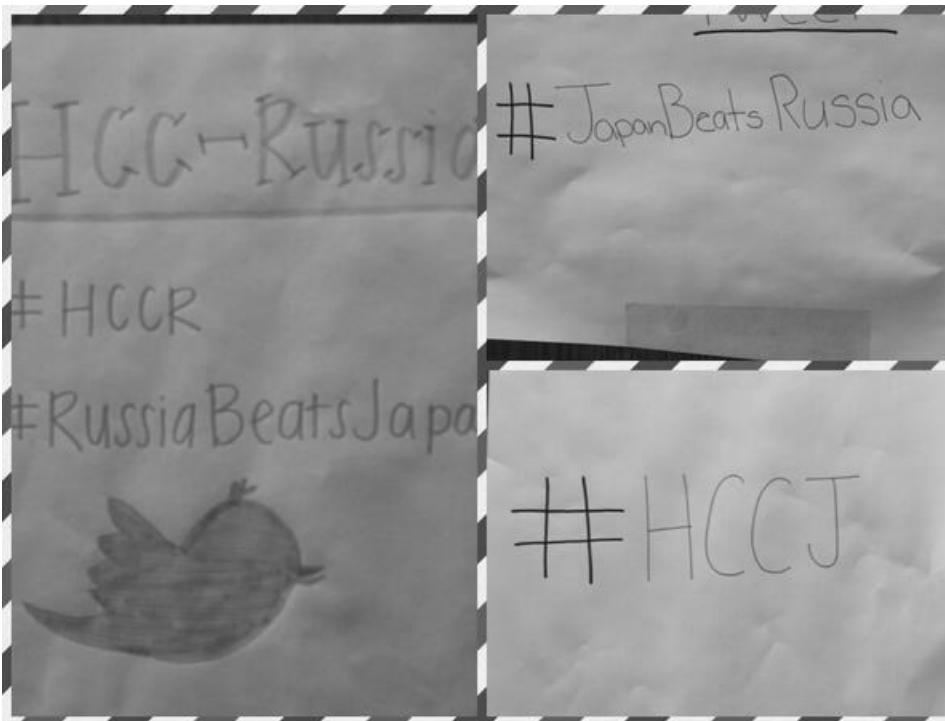 HCC-Russia
#HCCR
#RussiaBeatsJapa
Tweet
#JapanBeatsRussia
#HCCJ